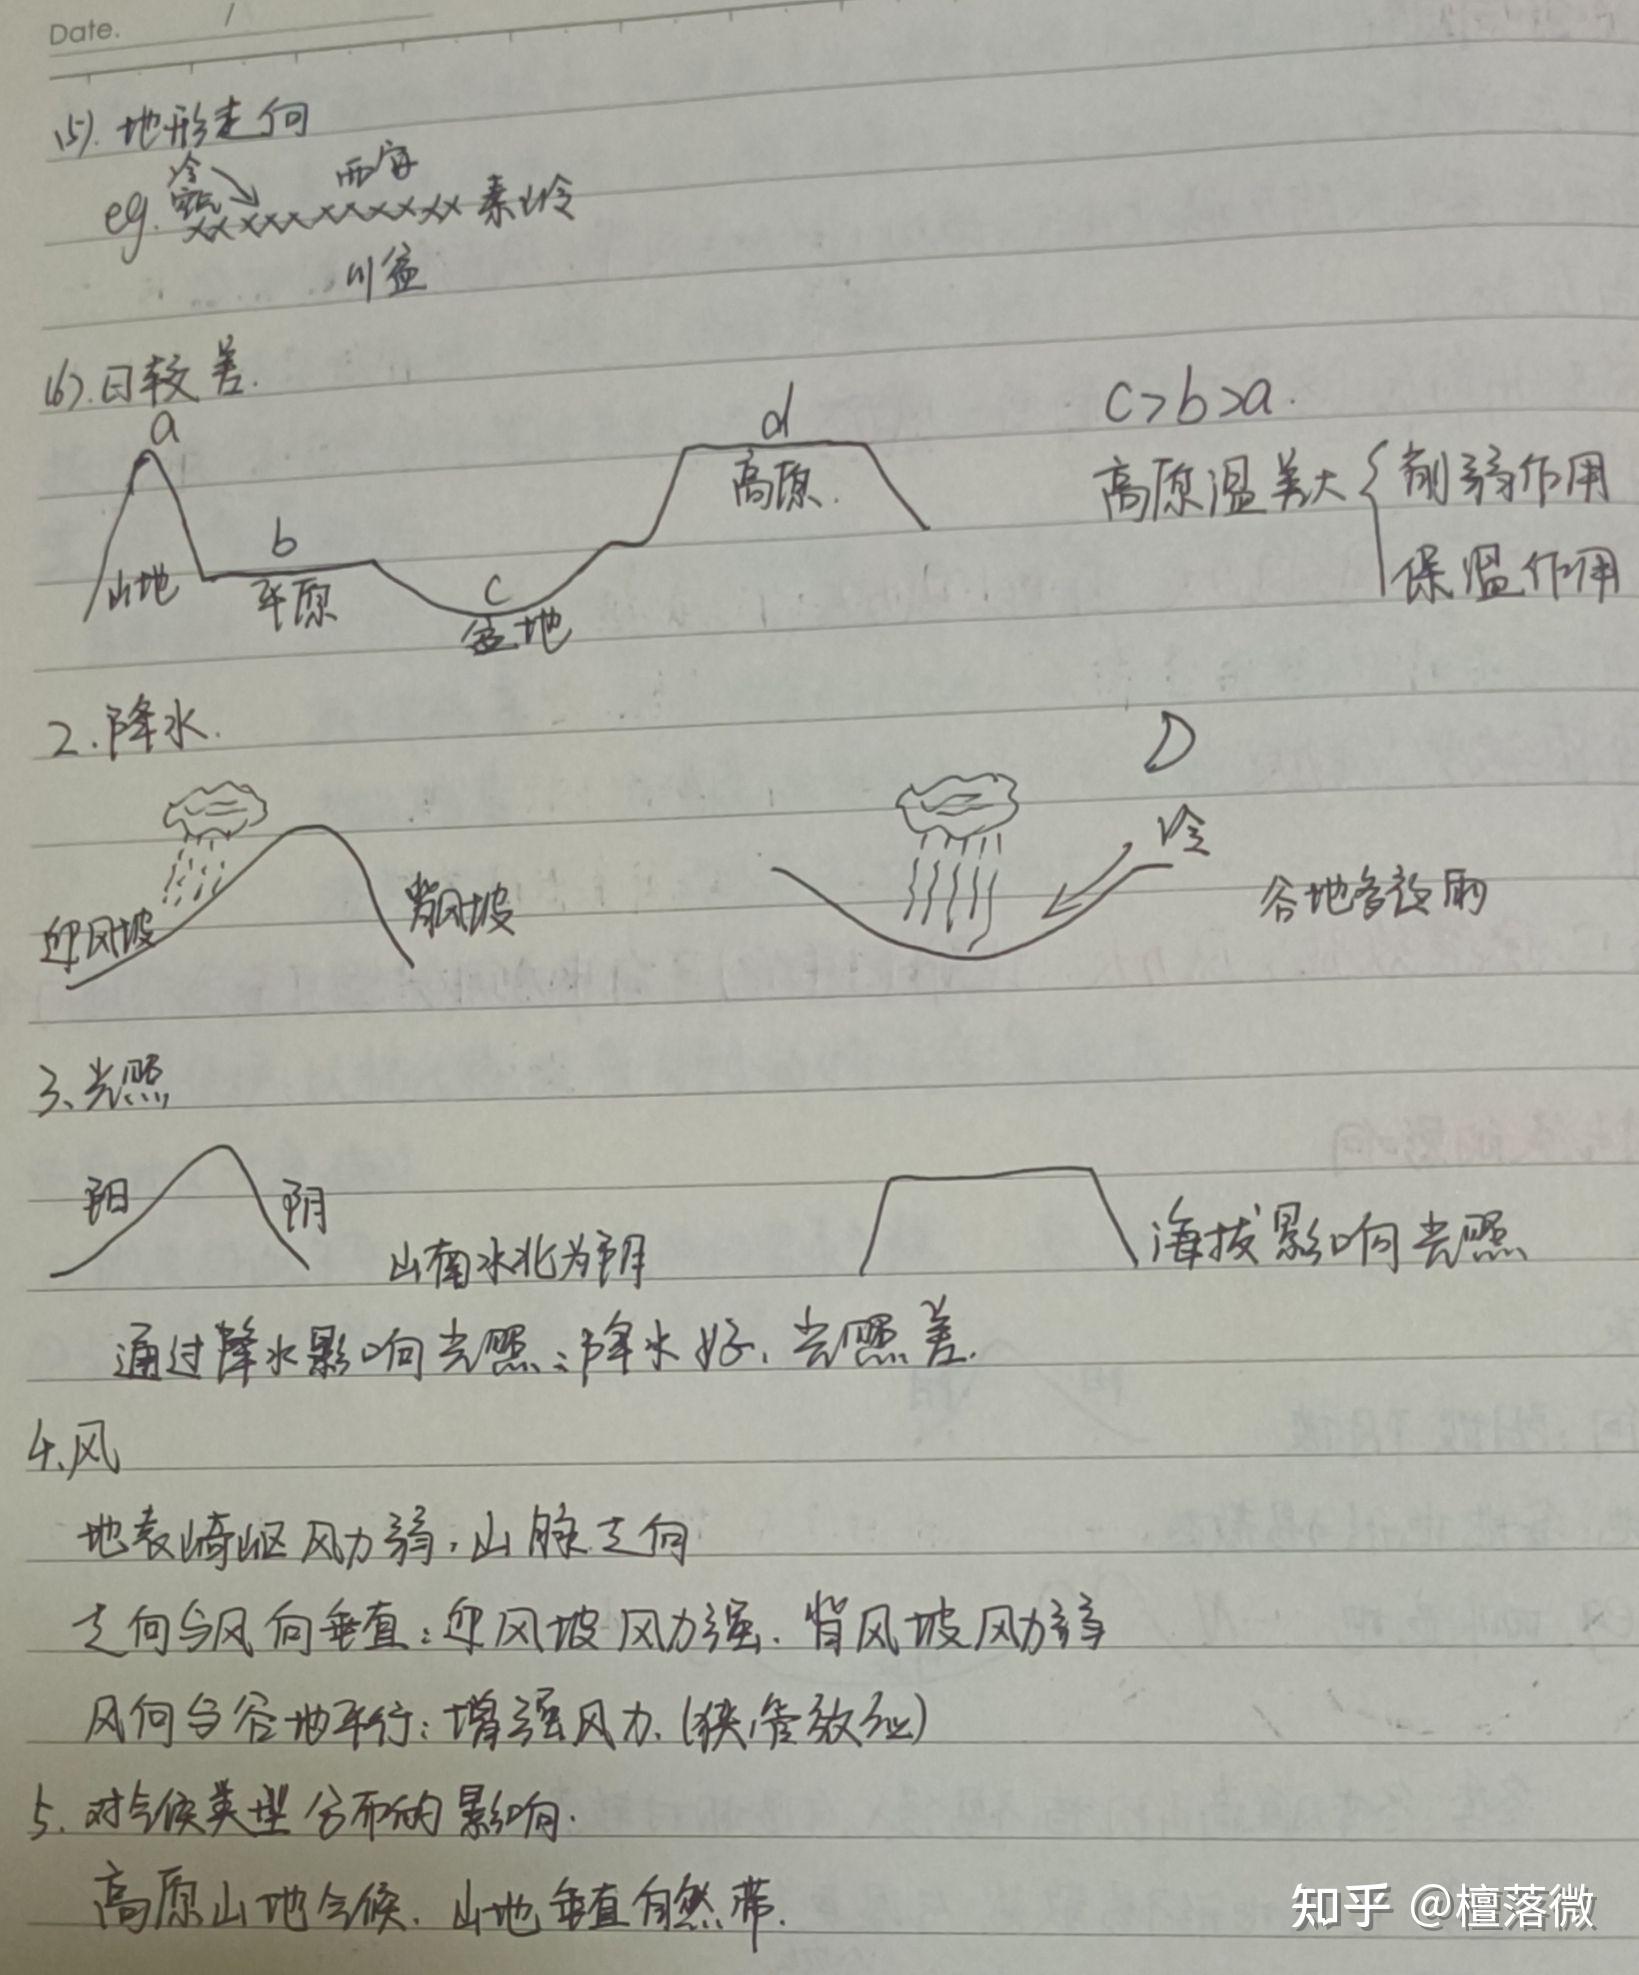 Date.
(5).地形走向
冷
空气
西安
eg.
秦岭
川盆
(6).日较差.
a
d
c>b>a.
高原
高原温差大
削弱作用
保温作用
b
山地
平原
c
盆地
2.降水.
冷
迎风坡
背风坡
谷地多夜雨
3、光照
阳
阴
山南水北为阳
海拔影响光照
通过降水影响光照:降水好、光照差.
4.风
地表崎岖风力弱,山脉走向
走向与风向垂直:迎风坡风力强.背风坡风力弱
风向与谷地平行:增强风力.(狭管效应)
5.对气候类型分布的影响.
高原山地气候.山地垂直自然带.
知乎 @檀落微